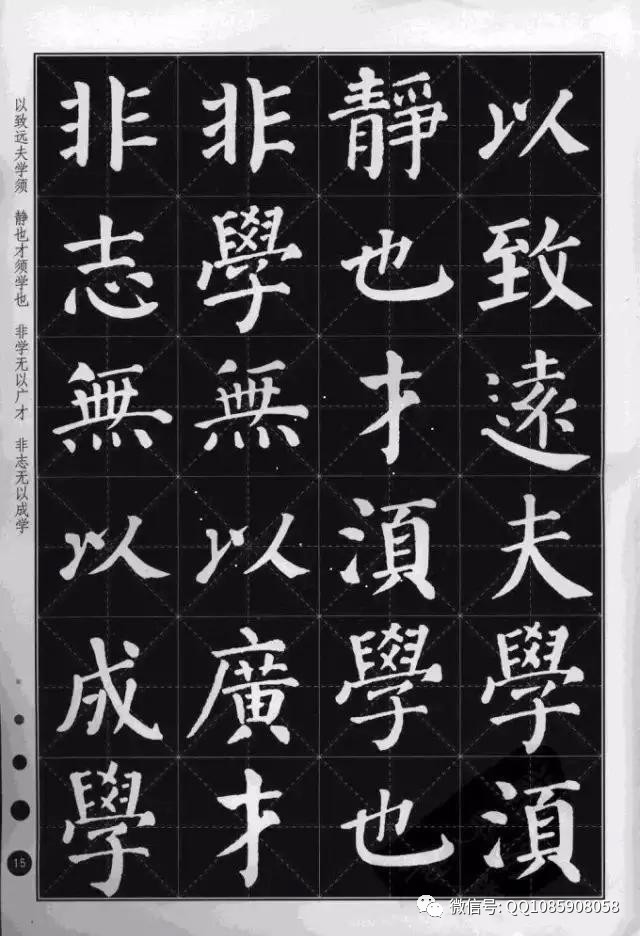 以致遠夫學湏
靜也才湏學也
非學無以廣才
非志無以成學
以致远夫学须 静也才须学也 非学无以广才 非志无以成学
15
微信号: QQ1085908058